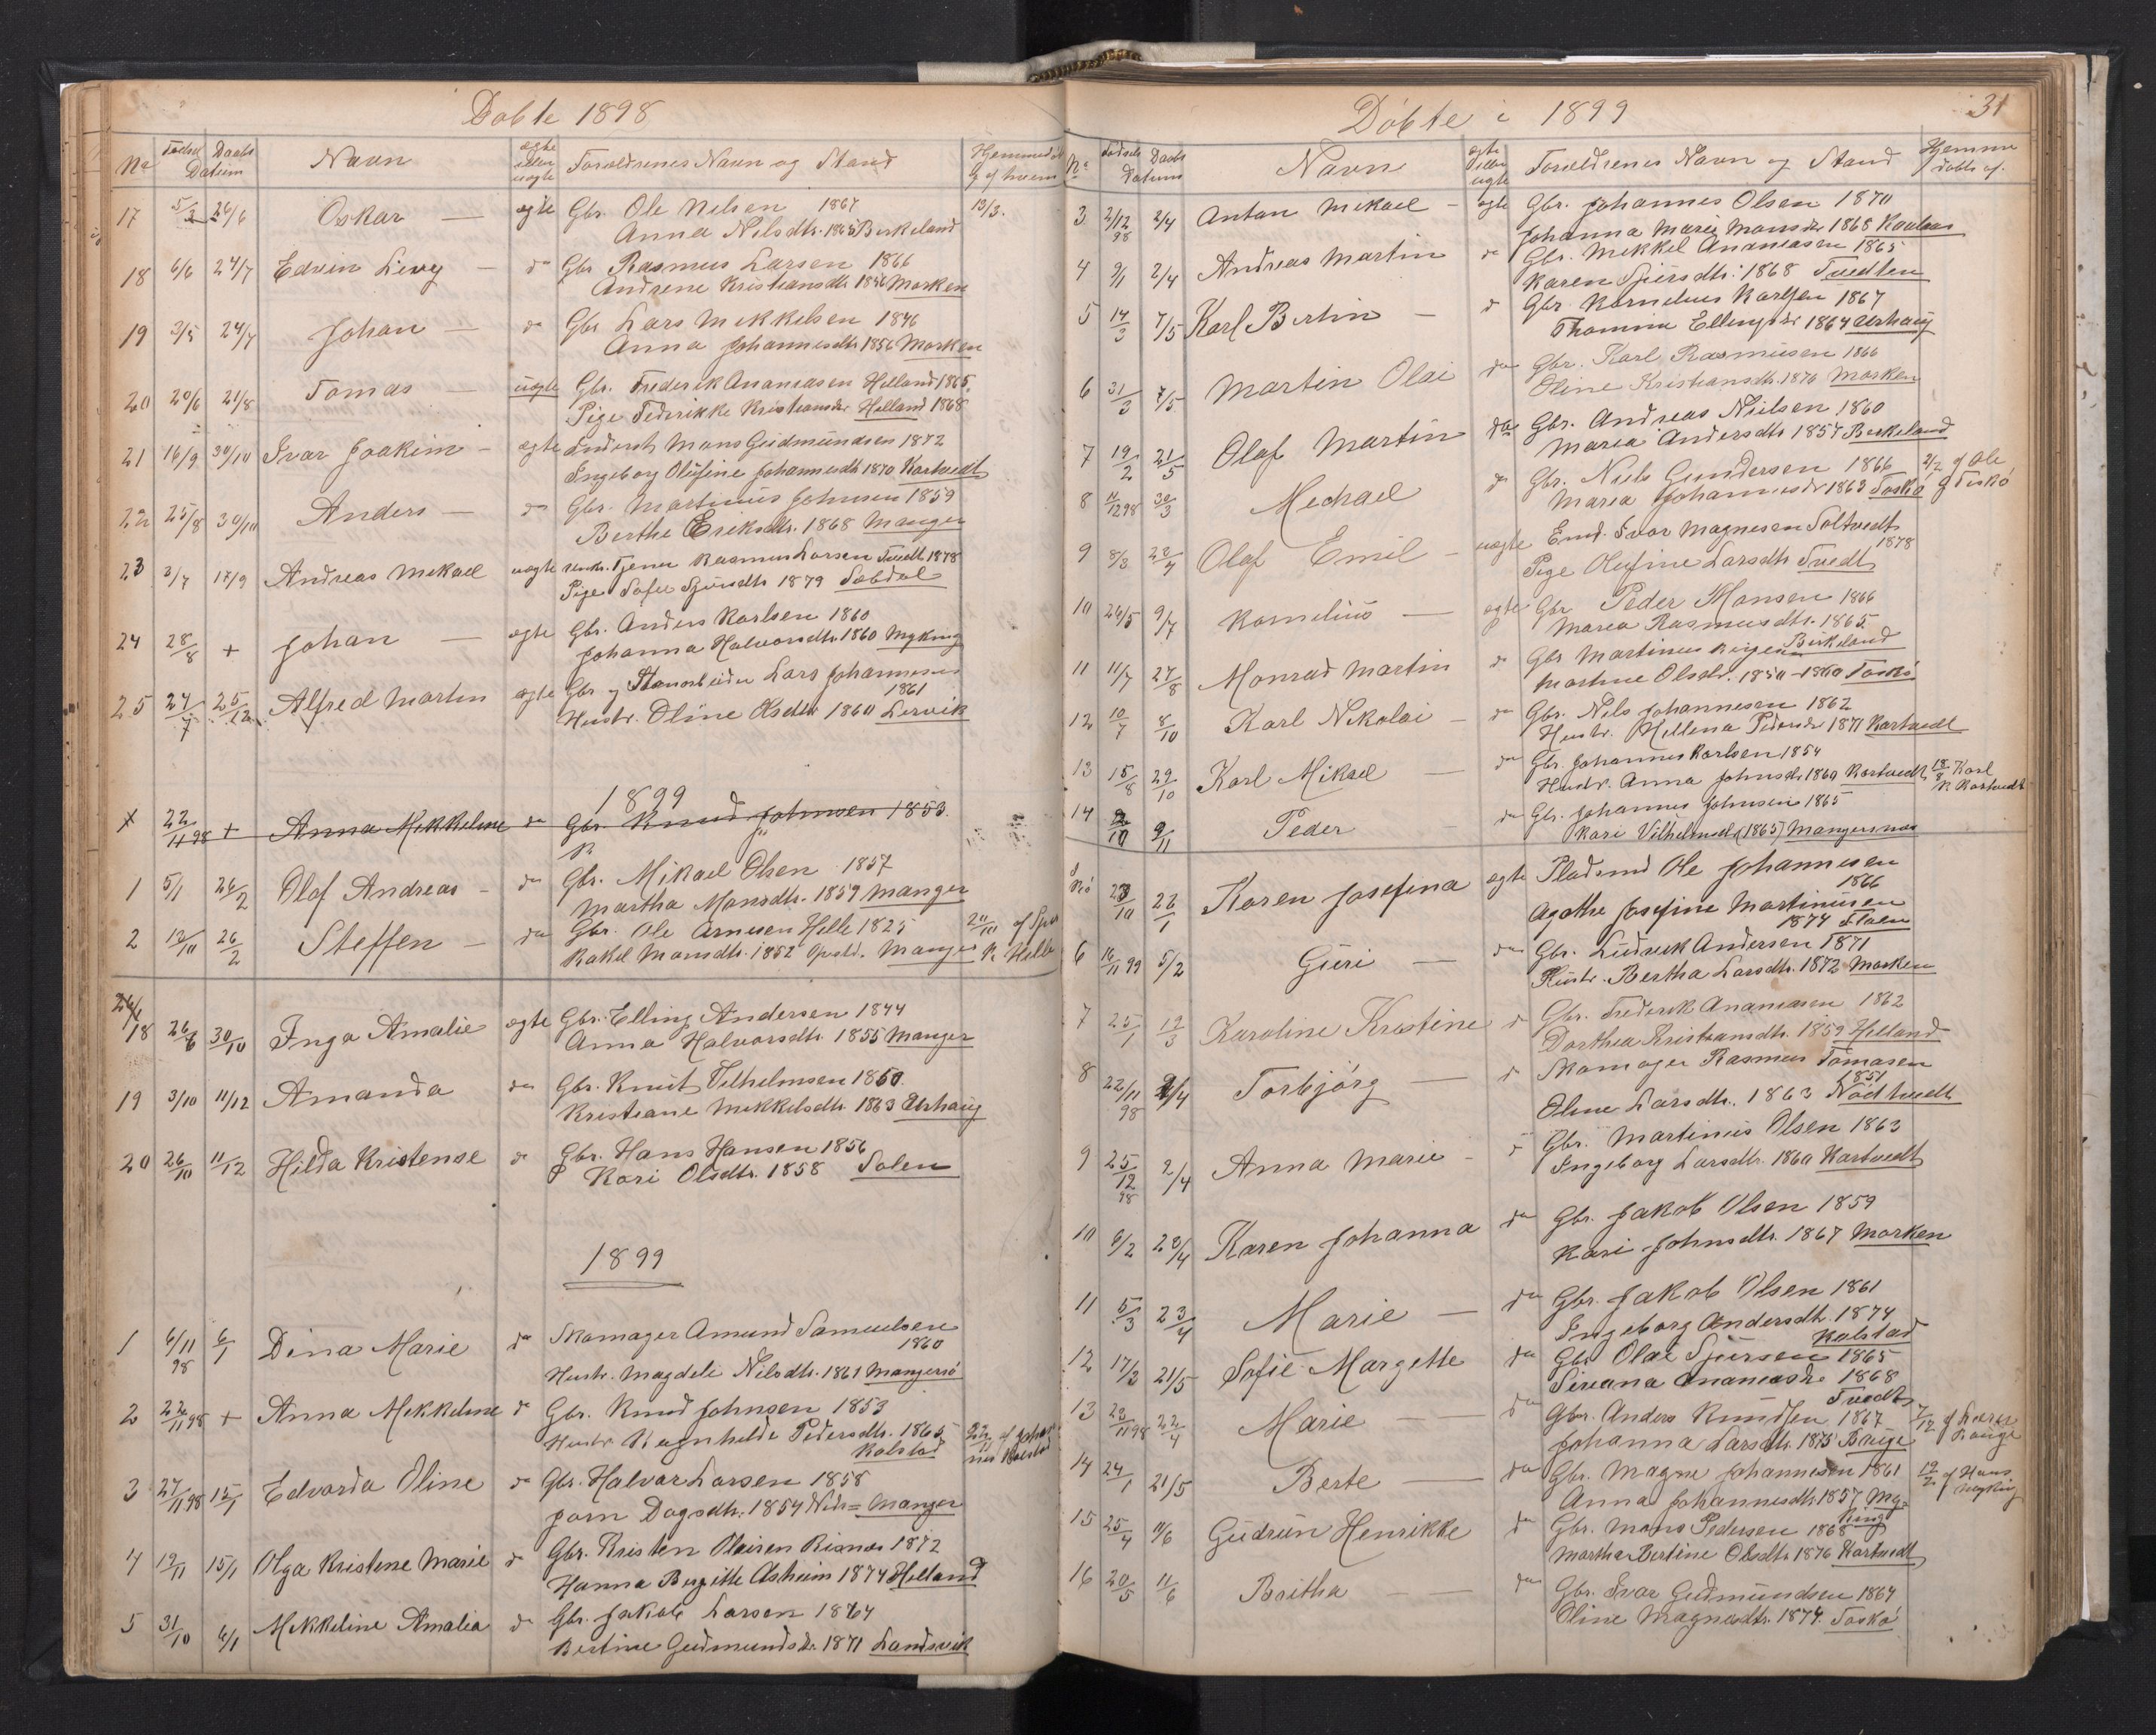 Døbte 1898
No Fødsel Daabs Datum Navn ægte eller uægte Forældrenes Navn og Stand Hjemmedøbt af hvem
17 5/3 26/6 Oskar — ægte Gbr. Ole Nilsen 1867 13/3.
Anna Nilsdtr. 1865 Birkeland
18 6/6 24/7 Edvin Levy — do Gbr Rasmus Larsen 1866
Andrene Kristiansdtr 1876 Marken
19 3/5 24/7 Johan — do Gbr Lars Mikkelsen 1846
Anna Johannesdtr 1856 Marken
20 20/6 21/8 Tomas — uægte Gbr. Frederik Ananiasen Helland 1865
Pige Federikke Kristiansdr Helland 1868
21 16/9 30/10 Ivar Joakim — ægte Inderst Mons Gudmundsen 1872
Ingeborg Olufine Johannesdtr 1870 Kartvedt
22 25/8 30/10 Anders — do Gbr. Martinus Johnsen 1859
Berthe Eriksdtr. 1868 Manger
23 3/7 17/9 Andreas Mekael uægte Tjener Rasmus Larsen Tvedt 1878
Pige Sofie Sjursdtr 1879 Sæbdal
24 28/8 + Johan — ægte Gbr. Anders Karlsen 1860
Johanna Halvorsdtr. 1860 Myking
25 24/7 25/12 Alfred Martin ægte Gbr. og Stenarbeider Lars Johannesen
1861
Hustr. Oline Olsdtr 1860 Lervik
1899
22/11 98 + Anna Mekkeline do Gbr. Knud Johnsen 1853.
1 5/1 26/2 Olaf Andreas — do Gbr. Mikael Olsen 1857
Martha Monsdtr. 1859 Manger
2 12/11 26/2 Steffen — do Gbr. Ole Arnesen Helle 1825
Rakel Monsdtr. 1852 Manger
18 26/6 30/10 Inga Amalie ægte Gbr. Elling Andersen 1844
Anna Halvorsdtr 1855 Manger
19 3/10 11/12 Amanda do Gbr. Knut Vilhelmsen 1860.
Kristiane Mekkelsdtr 1863 Urhaug
20 26/10 11/12 Hilda Kristense do Gbr. Hans Hansen 1856
Kari Olsdtr. 1858 Solen
1899
1 6/11 98 6/1 Dina Marie do Skomager Amund Samuelsen
1860
Hustr. Magdeli Nilsdtr. 1861 Mangersø
2 22/11 98 + Anna Mekkeline do Gbr. Knud Johnsen 1853
Hustr Ragnhilde Pedersdtr. 1865
Kolstad
3 27/11 98 15/1 Edvarda Oline do Gbr. Halvor Larsen 1858
Dagsdtr. 1854 Manger
4 19/11 15/1 Olga Kristene Marie do Gbr. Kristen Olaisen Risnes 1872
Hanna Birgitte Asheim 1874 Helland
5 31/10 6/1 Mekkeline Amalia do Gbr. Jakob Larsen 1864
Bertine Gudmundsdr. 1871 Landsvik
Døbte i 1899 31
No Fødsels Daabs Datum Navn ægte eller uægte Forældrenes Navn og Stand Hjemmedøbt af.
3 2/12 98 2/4 Anton Mekael — ægte Gbr. Johannes Olsen 1870
Johanna Marie Monsdr 1868
4 9/1 2/4 Andreas Martin do Gbr. Mekkel Ananiasen 1865
Karen Sjursdtr. 1868 Tvedten
5 14/3 7/5 Karl Bertin — do Gbr. Kornelius Karlsen 1867
Thomine Ellingsdr 1864 Urhaug
6 31/3 7/5 Martin Olai do Gbr. Karl Rasmusen 1866
Oline Kristiansdtr. 1876 Marken
7 19/2 21/5 Olaf Martin do Gbr. Andreas Nielsen 1860
Maria Andersdtr 1857 Birkeland
8 11/12 98 30/3 Mechael do Gbr. Niels Gundersen 1866 2/2 af Ole
Maria Johannesdr 1863 Toskø G Toskø
9 8/3 23/4 Olaf Emil — uægte Emd. Ivar Magnesen Soltvedt
1878
Pige Olufine Larsdtr Tvedt
10 26/5 9/7 Kornelius — ægte Gbr Peder Monsen 1866
Maria Rasmusdtr. 1865
Birkeland
11 11/7 27/8 Monrad Martin do Gbr Martinus
Martine Olsdr. 1850 - 1860 Toskø
12 10/7 8/10 Karl Nikolai — do Gbr. Nils Johannesen 1862
Hustr. Hellena Pedersdr 1871 Kartvedt
13 15/8 29/10 Karl Mikael — do Gbr. Johannes Karlsen 1854
Hustr. Anna Johnsdr. 1860 Kartvedt 18/8 Karl
K Kartvedt
14 2/10 9/11 Peder do Gbr. Johannes Johnsen 1865
Kari Vilhelmsd (1865) Mangersnes
23/10 22/1 Karen Josefina ægte Pladsmd Ole Johannesen
1866
Agathe Josefine Martinusen
1874 Floen
6 16/11 99 5/2 Guri — do Gbr. Ludvik Andersen 1871
Hustr. Bertha Larsdtr. 1872 Marken
7 25/1 19/3 Karoline Kristine do Gbr. Frederik Ananiasen 1862
Dorthea Kristiansdtr. 1859 Helland
8 22/11 98 2/4 Torbjörg — do Skomager Rasmus Tomasen
1851
Oline Larsdtr. 1863 Nødtvedt
9 25/12 98 2/4 Anna Marie — do Gbr. Martinus Olsen 1863
Ingeborg Larsdtr. 1860 Kartvedt
10 6/2 23/4 Karen Johanna do Gbr. Jakob Olsen 1859
Kari Johnsdtr. 1867 Marken
11 5/3 23/4 Marie — do Gbr. Jakob Olsen 1861
Ingeborg Andersdtr. 1874
Kolstad
12 17/3 21/5 Sofie Margette do Gbr Olai Sjursen 1865
Siveana Ananiasdr 1868
Tvedt
13 23/11 98 23/4 Marie — do Gbr. Anders Knudsen 1867 7/12 af
Johanna Larsdtr. 1875 Bauge Bauge
14 24/1 21/5 Berte — do Gbr. Magne Johannesen 1861 12/2 af Hans
Anna Johannesdtr 1857 My= Myking
king
15 25/4 11/6 Gudrun Henrikke do Gbr. Mons Pedersen 1868
Martha Bertine Olsdtr 1876 Kartvedt
16 20/5 11/6 Britha — do Gbr. Ivar Gudmundsen 1864
Oline Magnesdtr. 1874. Toskø